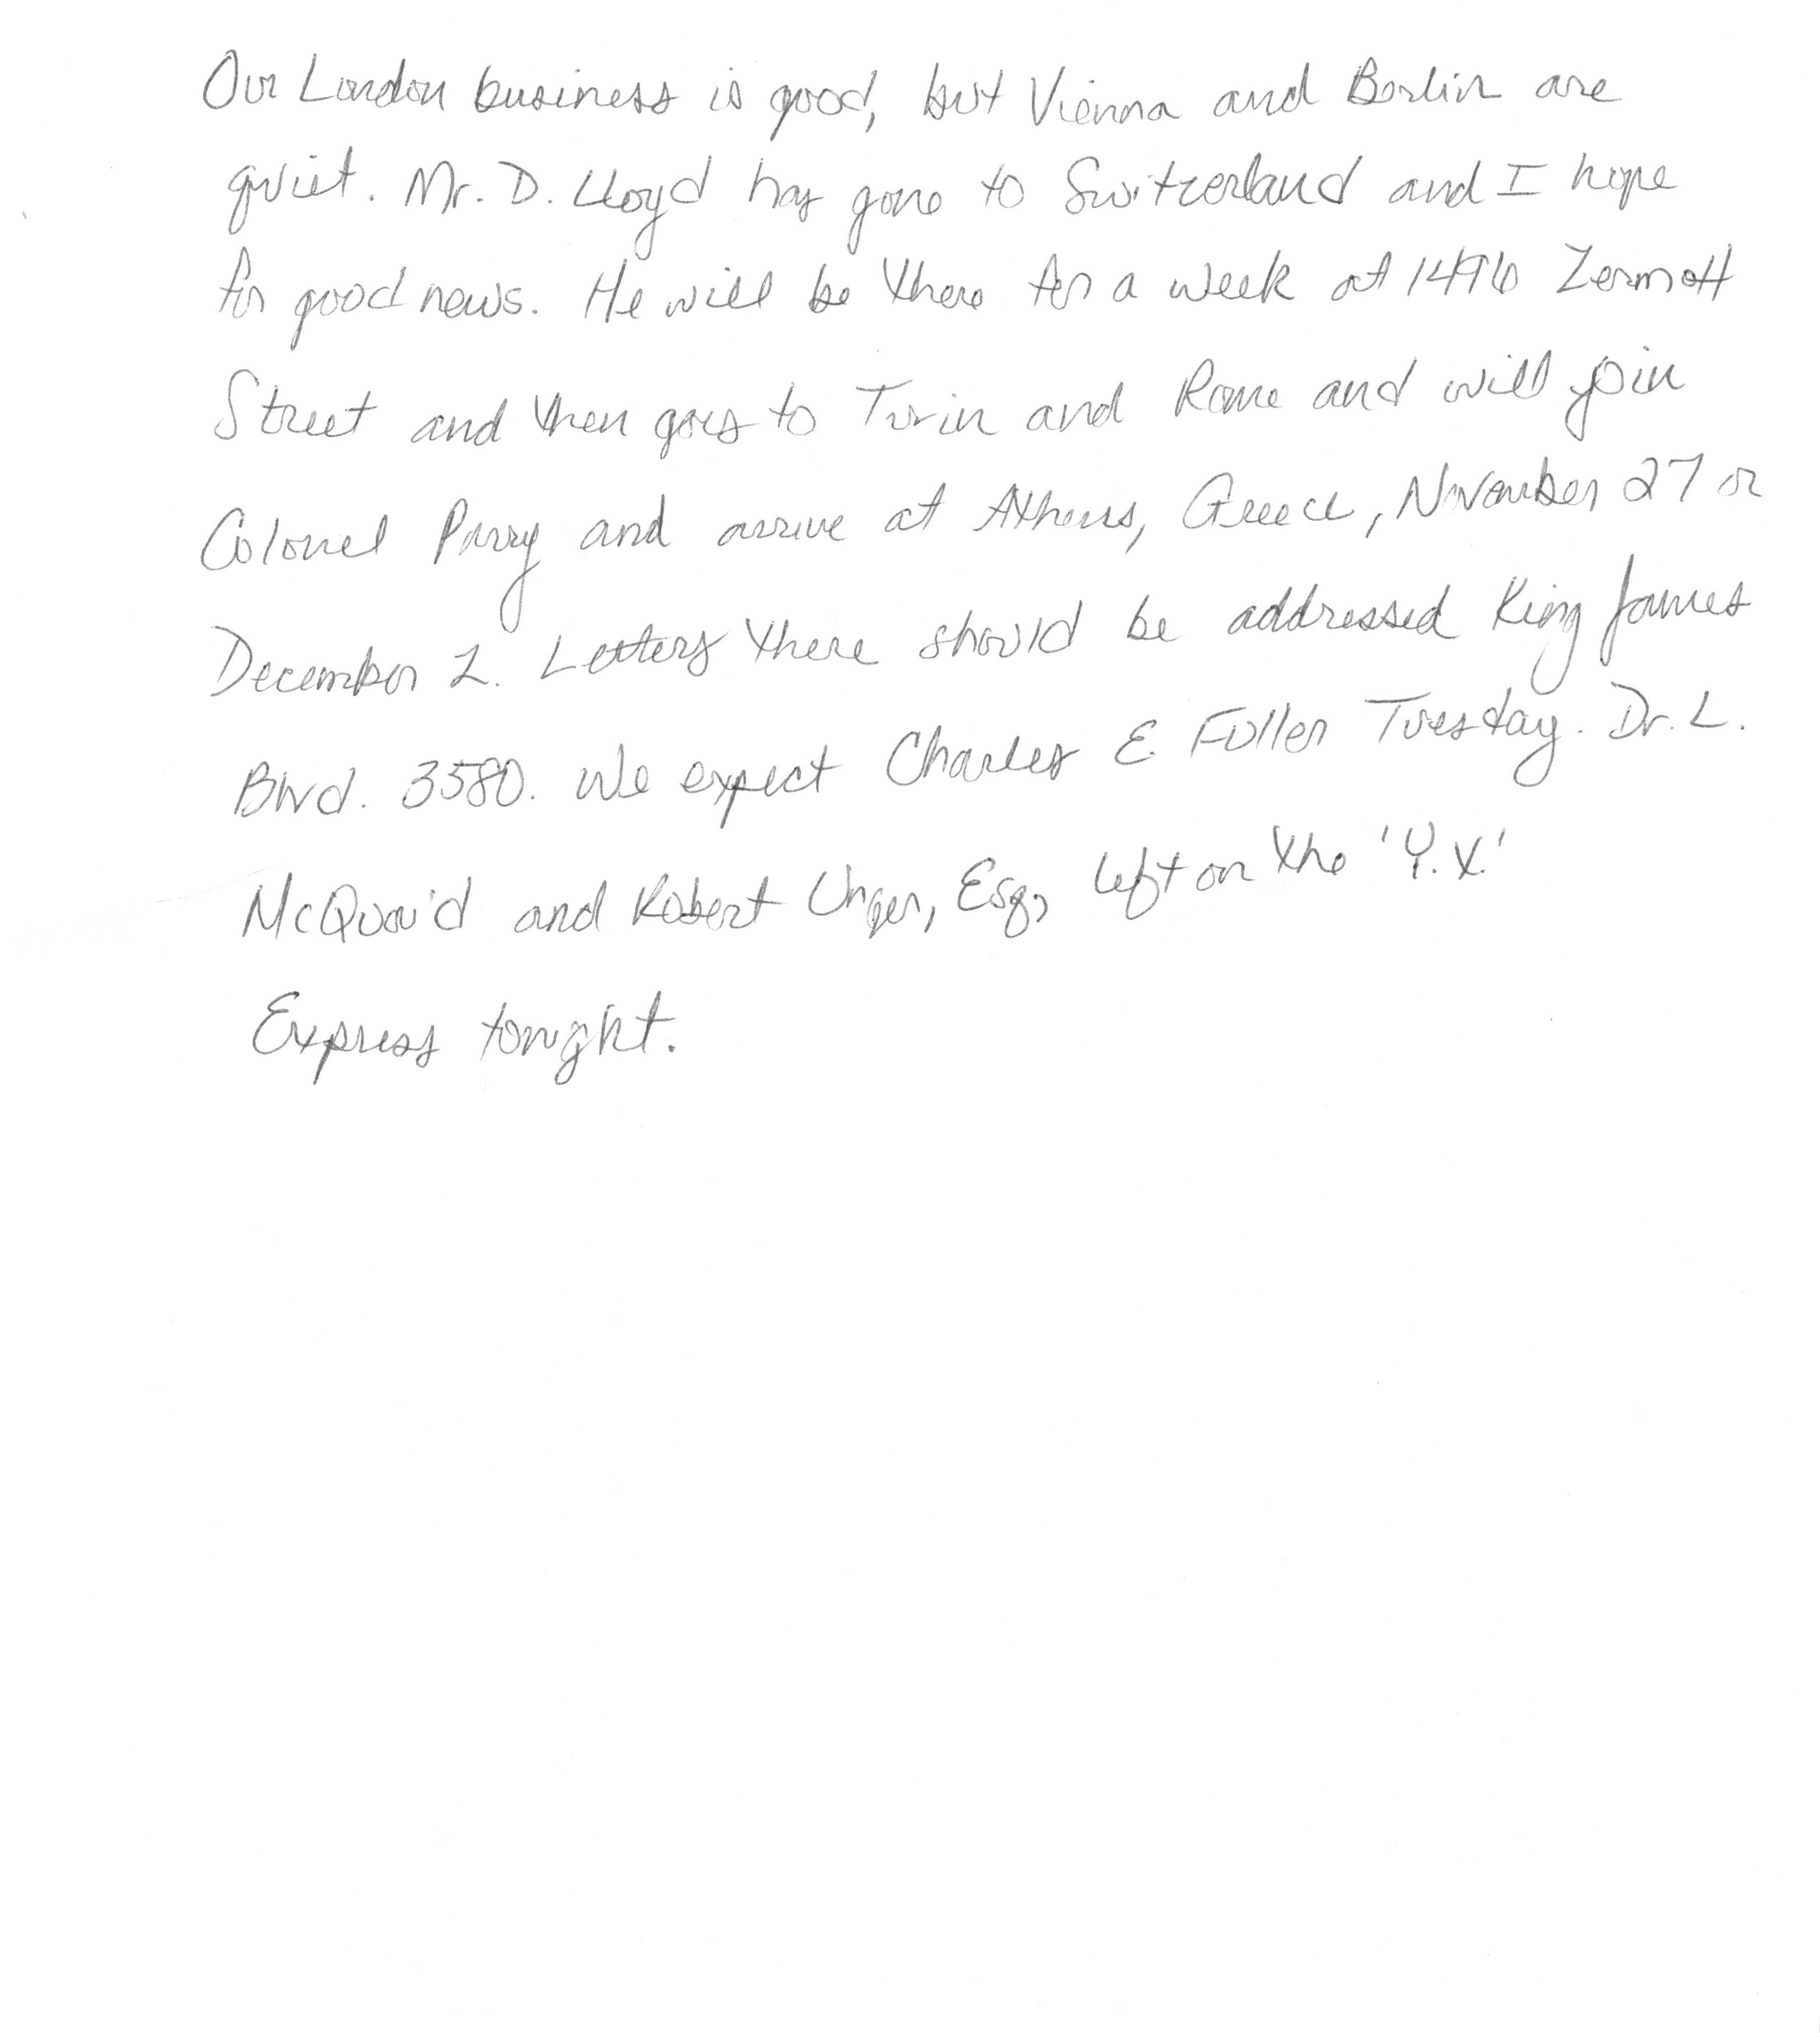 Our London business is good, but Vienna and Berlin are
quiet. Mr. D. Lloyd has gone to Switzerland and I hope
for good news. He will be there for a week at 1496 Zermott
Street and then goes to Turin and Rome and will join
Colonel Parry and arrive at Athens, Greece, November 27 or
December 2. Letters there should be addressed King James
Blvd. 3580. We expect Charles E. Fuller Tuesday. Dr. L.
McQuaid and Robert Unger, Esq, left on the 'Y.X.'
Express tonight.